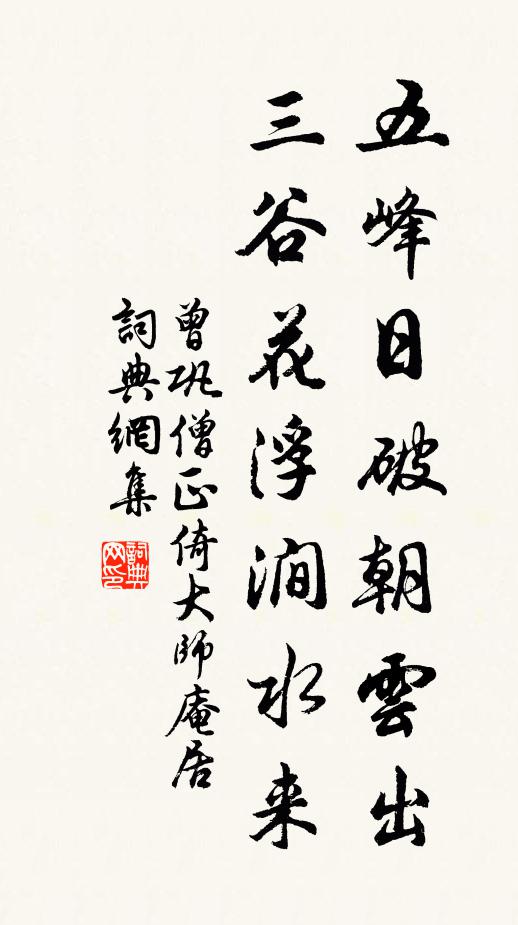 五峰日破朝雲出
三谷花浮澗水来
曾巩僧正倚大師庵居
詞典網集
詞典
网印